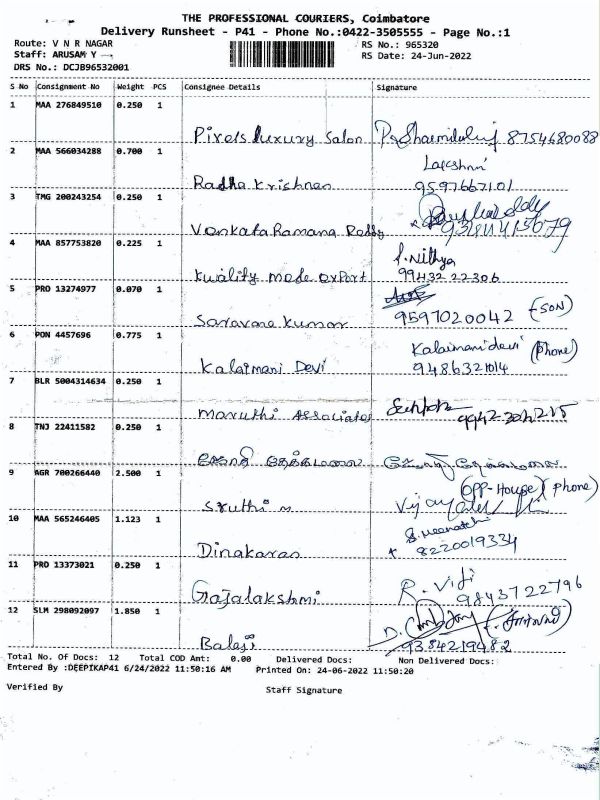 THE PROFESSIONAL COURIERS, Coimbatore
Delivery Runsheet - P41 - Phone No.:0422-3505555 - Page No.:1
Route: V N R NAGAR
RS No.: 965320
Staff: ARUSAM Y
RS Date: 24-Jun-2022
DRS No.: DCJB96532001
S No Consignment No Weight PCS Consignee Details Signature
1 MAA 276849510 0.250 1
Pixels luxury Salon 8754680088
2 MAA 566034288 0.700 1
Lakshmi
Radha Krishnan 9597667101
3 TMG 200243254 0.250 1
Venkata Ramana Reddy
4 MAA 857753820 0.225 1
P. Nithya
Kwality made export 99432 22306
5 PRO 13274977 0.070 1
Saravana Kumar 9597020042 (SON)
6 PON 4457696 0.775 1
Kalaimani devi (Phone)
Kalaimani Devi 9486321014
7 BLR 5004314634 0.250 1
Maruthi Associates
8 TNJ 22411582 0.250 1
9 AGR 700266440 2.500 1
(OPP-House) (Phone)
Sruthi M
10 MAA 565246405 1.123 1
S. Meenatchi
Dinakaran 8220019334
11 PRO 13373021 0.250 1
R. Viji
Gajalakshmi 9843722796
12 SLM 298092097 1.850 1
Balaji 9384219482
Total No. Of Docs: 12 Total COD Amt: 0.00 Delivered Docs: Non Delivered Docs:
Entered By :DEEPIKAP41 6/24/2022 11:50:16 AM Printed On: 24-06-2022 11:50:20
Verified By
Staff Signature